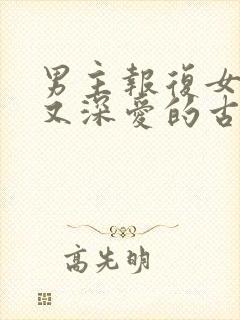 男主報復女
又深愛的古
高先明